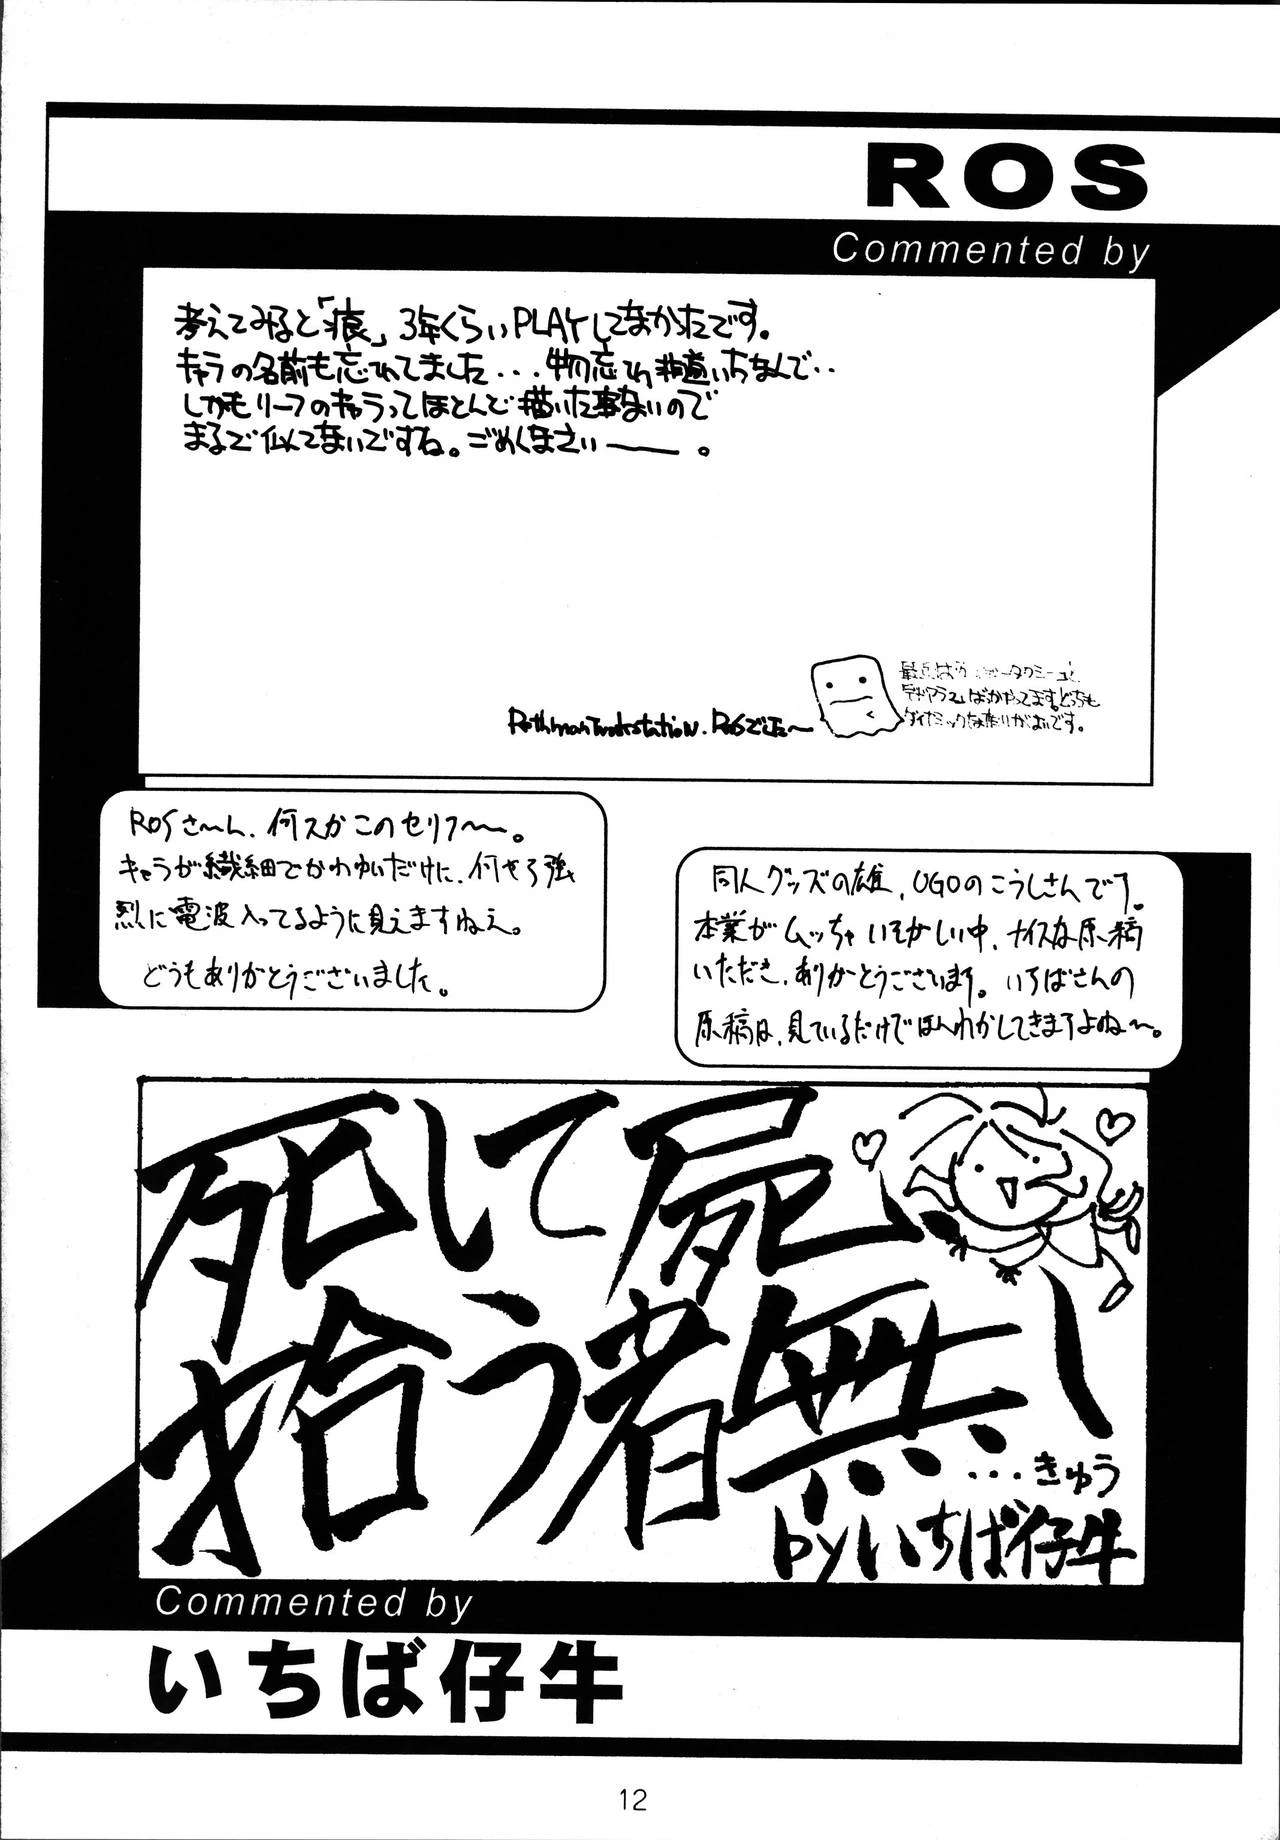 ROS
Commented by
考えてみると「痕」3年くらいPLAYしてなかったです。
キャラの名前も忘れてました...物忘れ 道いちなんで..
しかもリーフのキャラってほとんど描いた事ないので
まるで似てないですね。ごめくなさいー。
ばかやってます。どっちも
ダイナミックな走りがよいです。
RothmanWorkstation.ROSでした〜
ROSさ〜ん、何スかこのセリフ〜。
キャラが繊細でかわゆいだけに、何せろ強
烈に電波入ってるように見えますねえ。
どうもありがとうございました。
同人グッズの雄、UGOのこうしさんです。
本業がムッチャいそがしい中、ナイスな原稿
いただき、ありがとうございます。いちばさんの
原稿は、見ているだけでほんわかしてきますよね〜。
死して屍
拾う者無し
...きゅう
byいちば仔牛
Commented by
いちば仔牛
12